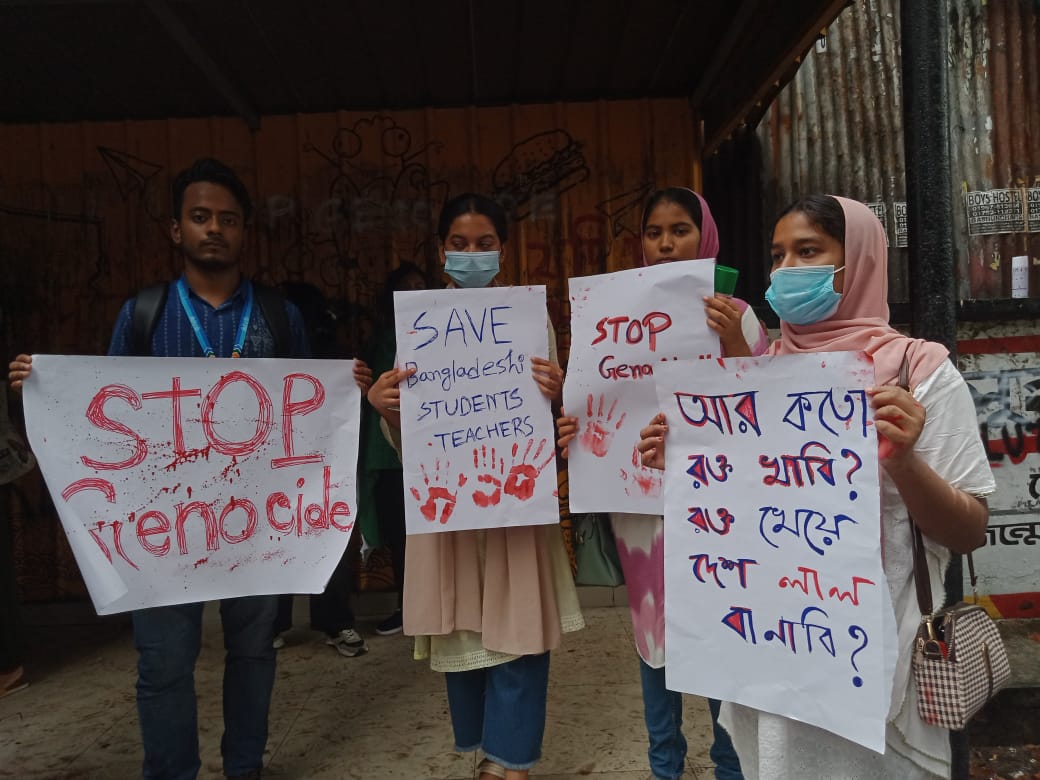 STOP
Genocide
SAVE
Bangladeshi
STUDENTS
TEACHERS
STOP
আর কতো
রক্ত খাবি?
রক্ত খেয়ে
দেশ লাল
বানাবি?
BOYS HOSTEL